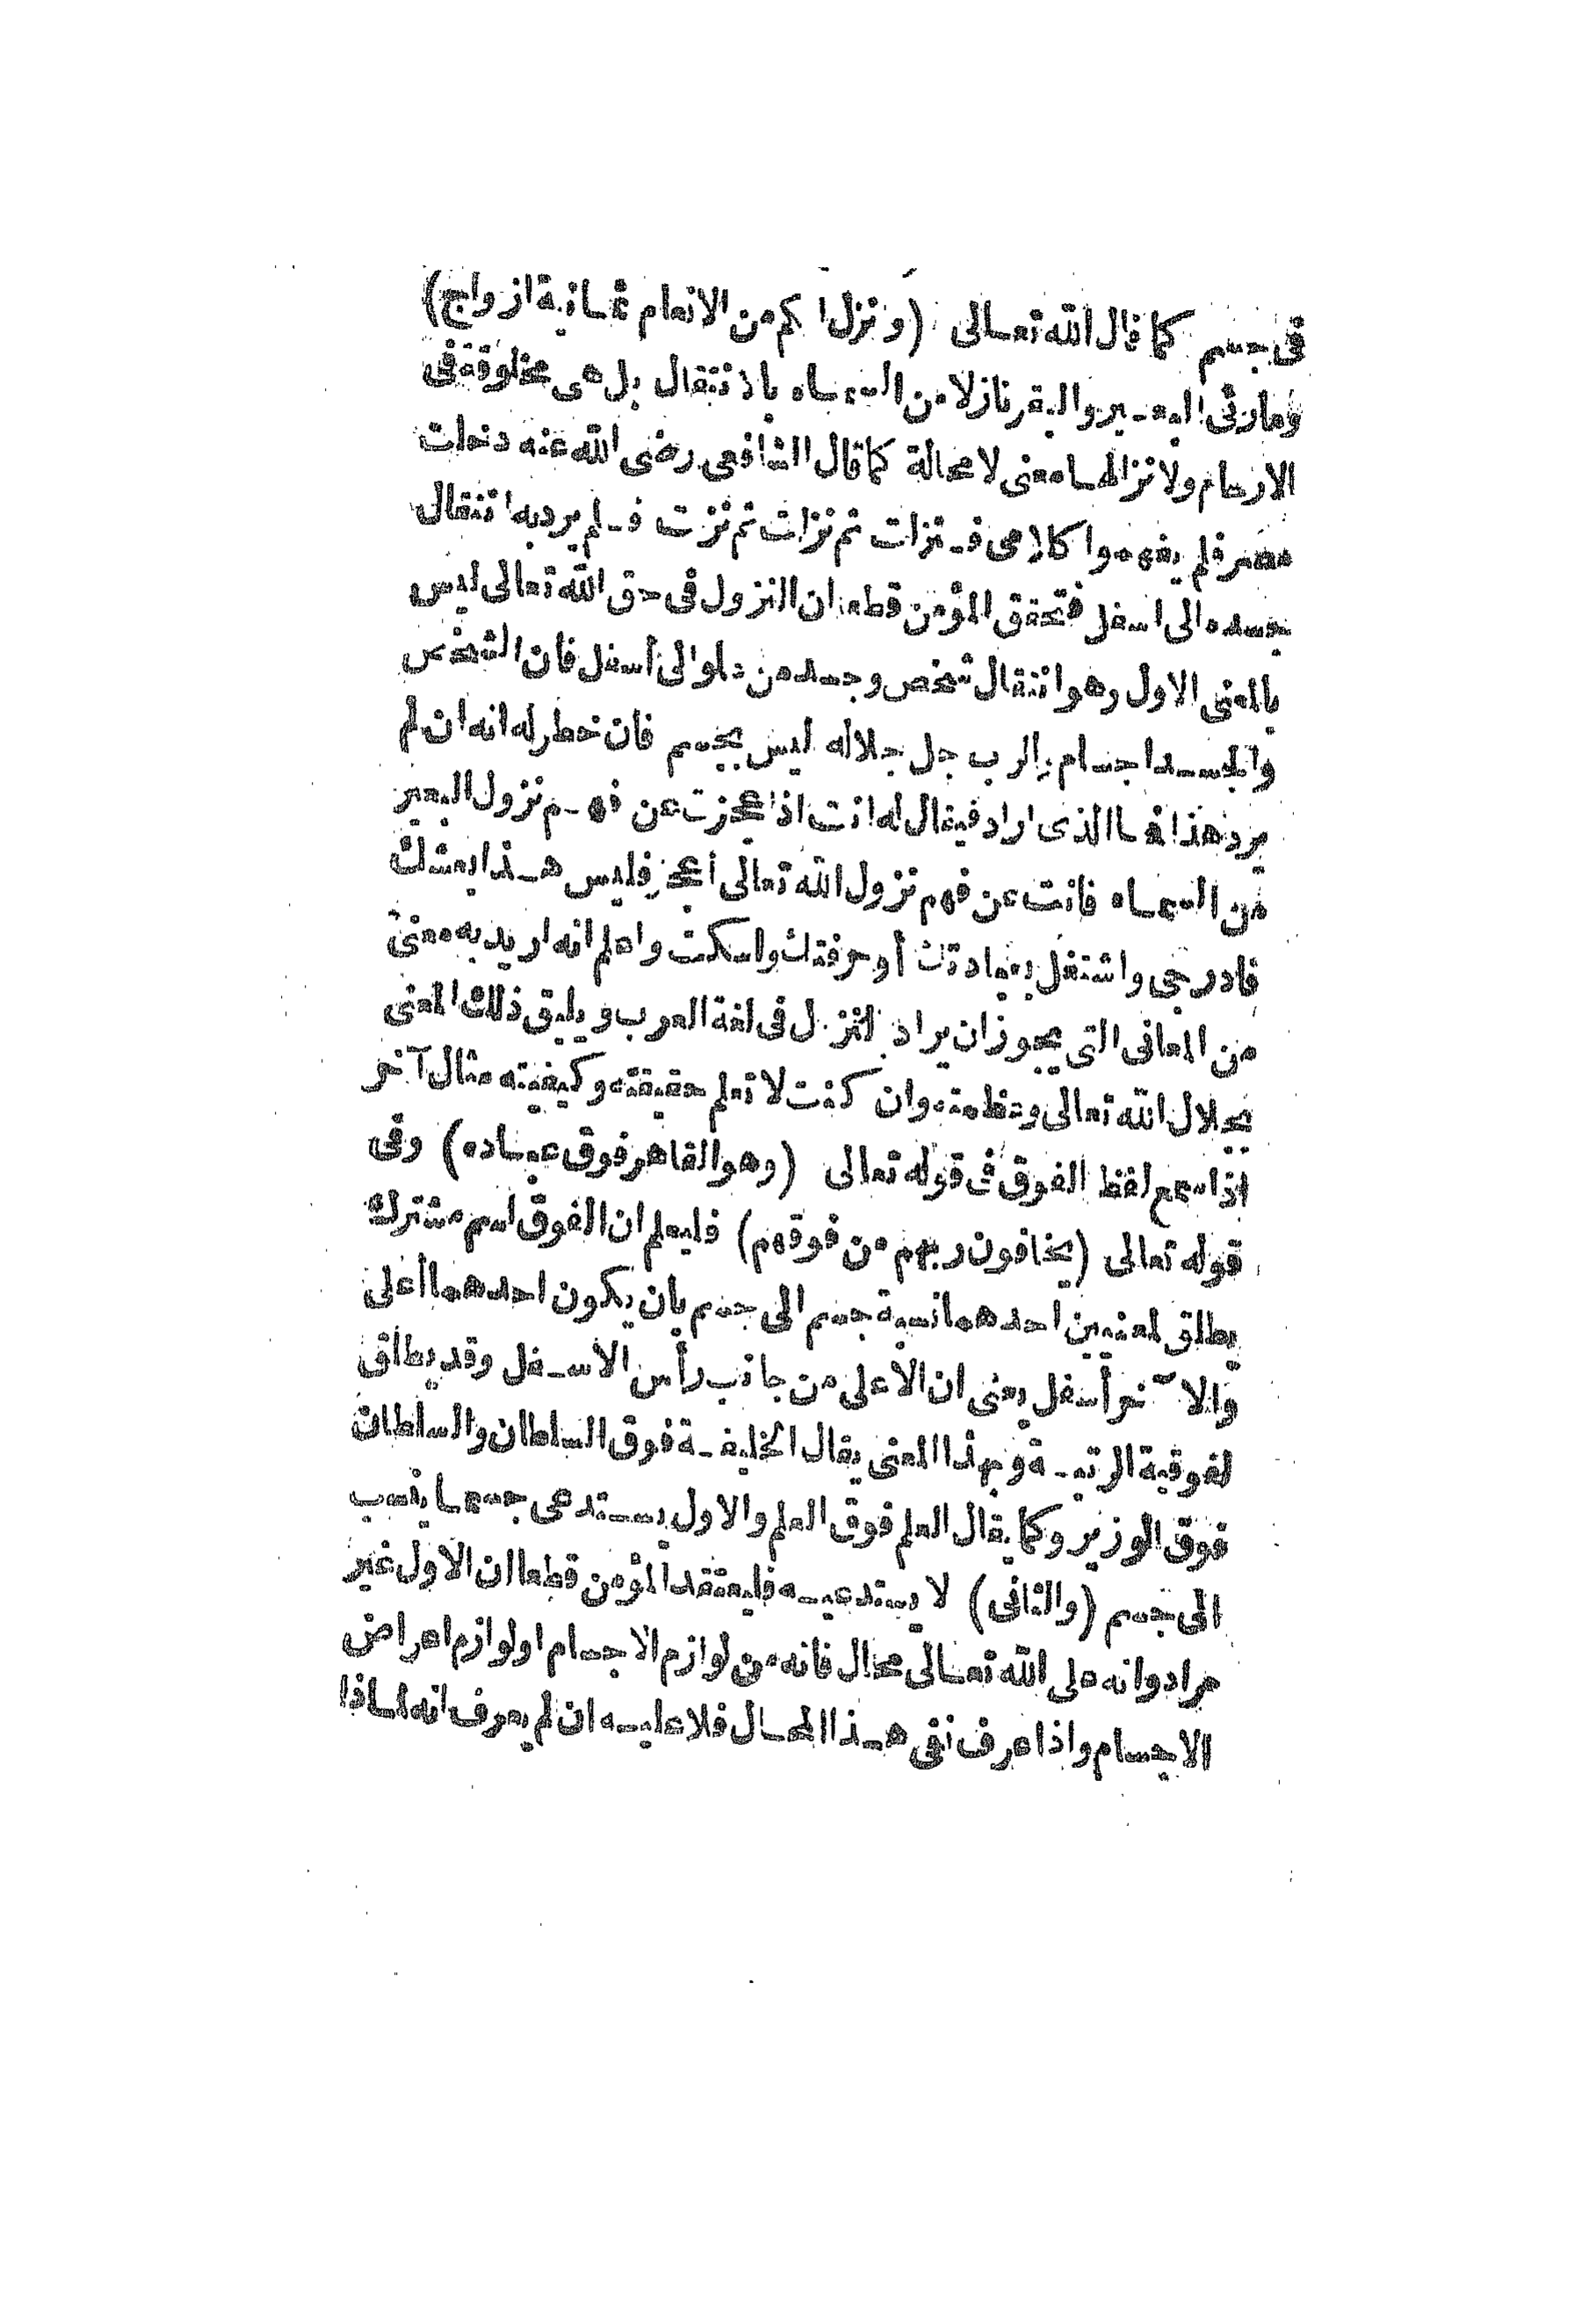 فى جسم كما قال الله تعالى (ونزل لكم من الانعام ثمانية ازواج)
وما رئى البعير والبقر نازلا من السماء بالانتقال بل هى مخلوقة فى
الارحام ولانزالها معنى لا محالة كما قال الشافعى رضى الله عنه دخلت
مصر فلم يفهموا كلامى فنزلت ثم نزلت ثم نزلت فلم يرد به انتقال
جسده الى اسفل فتحقق المؤمن قطعا ان النزول فى حق الله تعالى ليس
بالمعنى الاول وهو انتقال شخص وجسد من علو الى أسفل فان الشخص
والجسد اجسام والرب جل جلاله ليس بجسم فان خطر له انه ان لم
يرد هذا فما الذى اراد فيقال له انت اذا عجزت عن فهم نزول البعير
من السماء فانت عن فهم نزول الله تعالى أعجز فليس هذا بعشك
فادرجى واشتغل بعبادتك أو حرفتك واسكت واعلم انه اريد به معنى
من المعانى التى يجوز ان يراد بالنزول فى لغة العرب ويليق ذلك المعنى
بجلال الله تعالى وعظمته وان كنت لا تعلم حقيقته وكيفيته مثال آخر
اذا سمع لفظ الفوق فى قوله تعالى (وهو القاهر فوق عباده) وفى
قوله تعالى (يخافون ربهم من فوقهم) فليعلم ان الفوق اسم مشترك
يطلق لمعنيين احدهما نسبة جسم الى جسم بان يكون احدهما أعلى
والآخر أسفل يعنى ان الأعلى من جانب رأس الأسفل وقد يطلق
لفوقية الرتبة وبهذا المعنى يقال الخليفة فوق السلطان والسلطان
فوق الوزير وكما يقال العلم فوق العلم والاول يستدعى جسما ينسب
الى جسم (والثانى) لا يستدعيه فليعتقد المؤمن قطعا ان الاول غير
مراد وانه على الله تعالى محال فانه من لوازم الاجسام او لوازم اعراض
الاجسام واذا عرف نفى هذا المحال فلا عليه ان لم يعرف انه لماذا